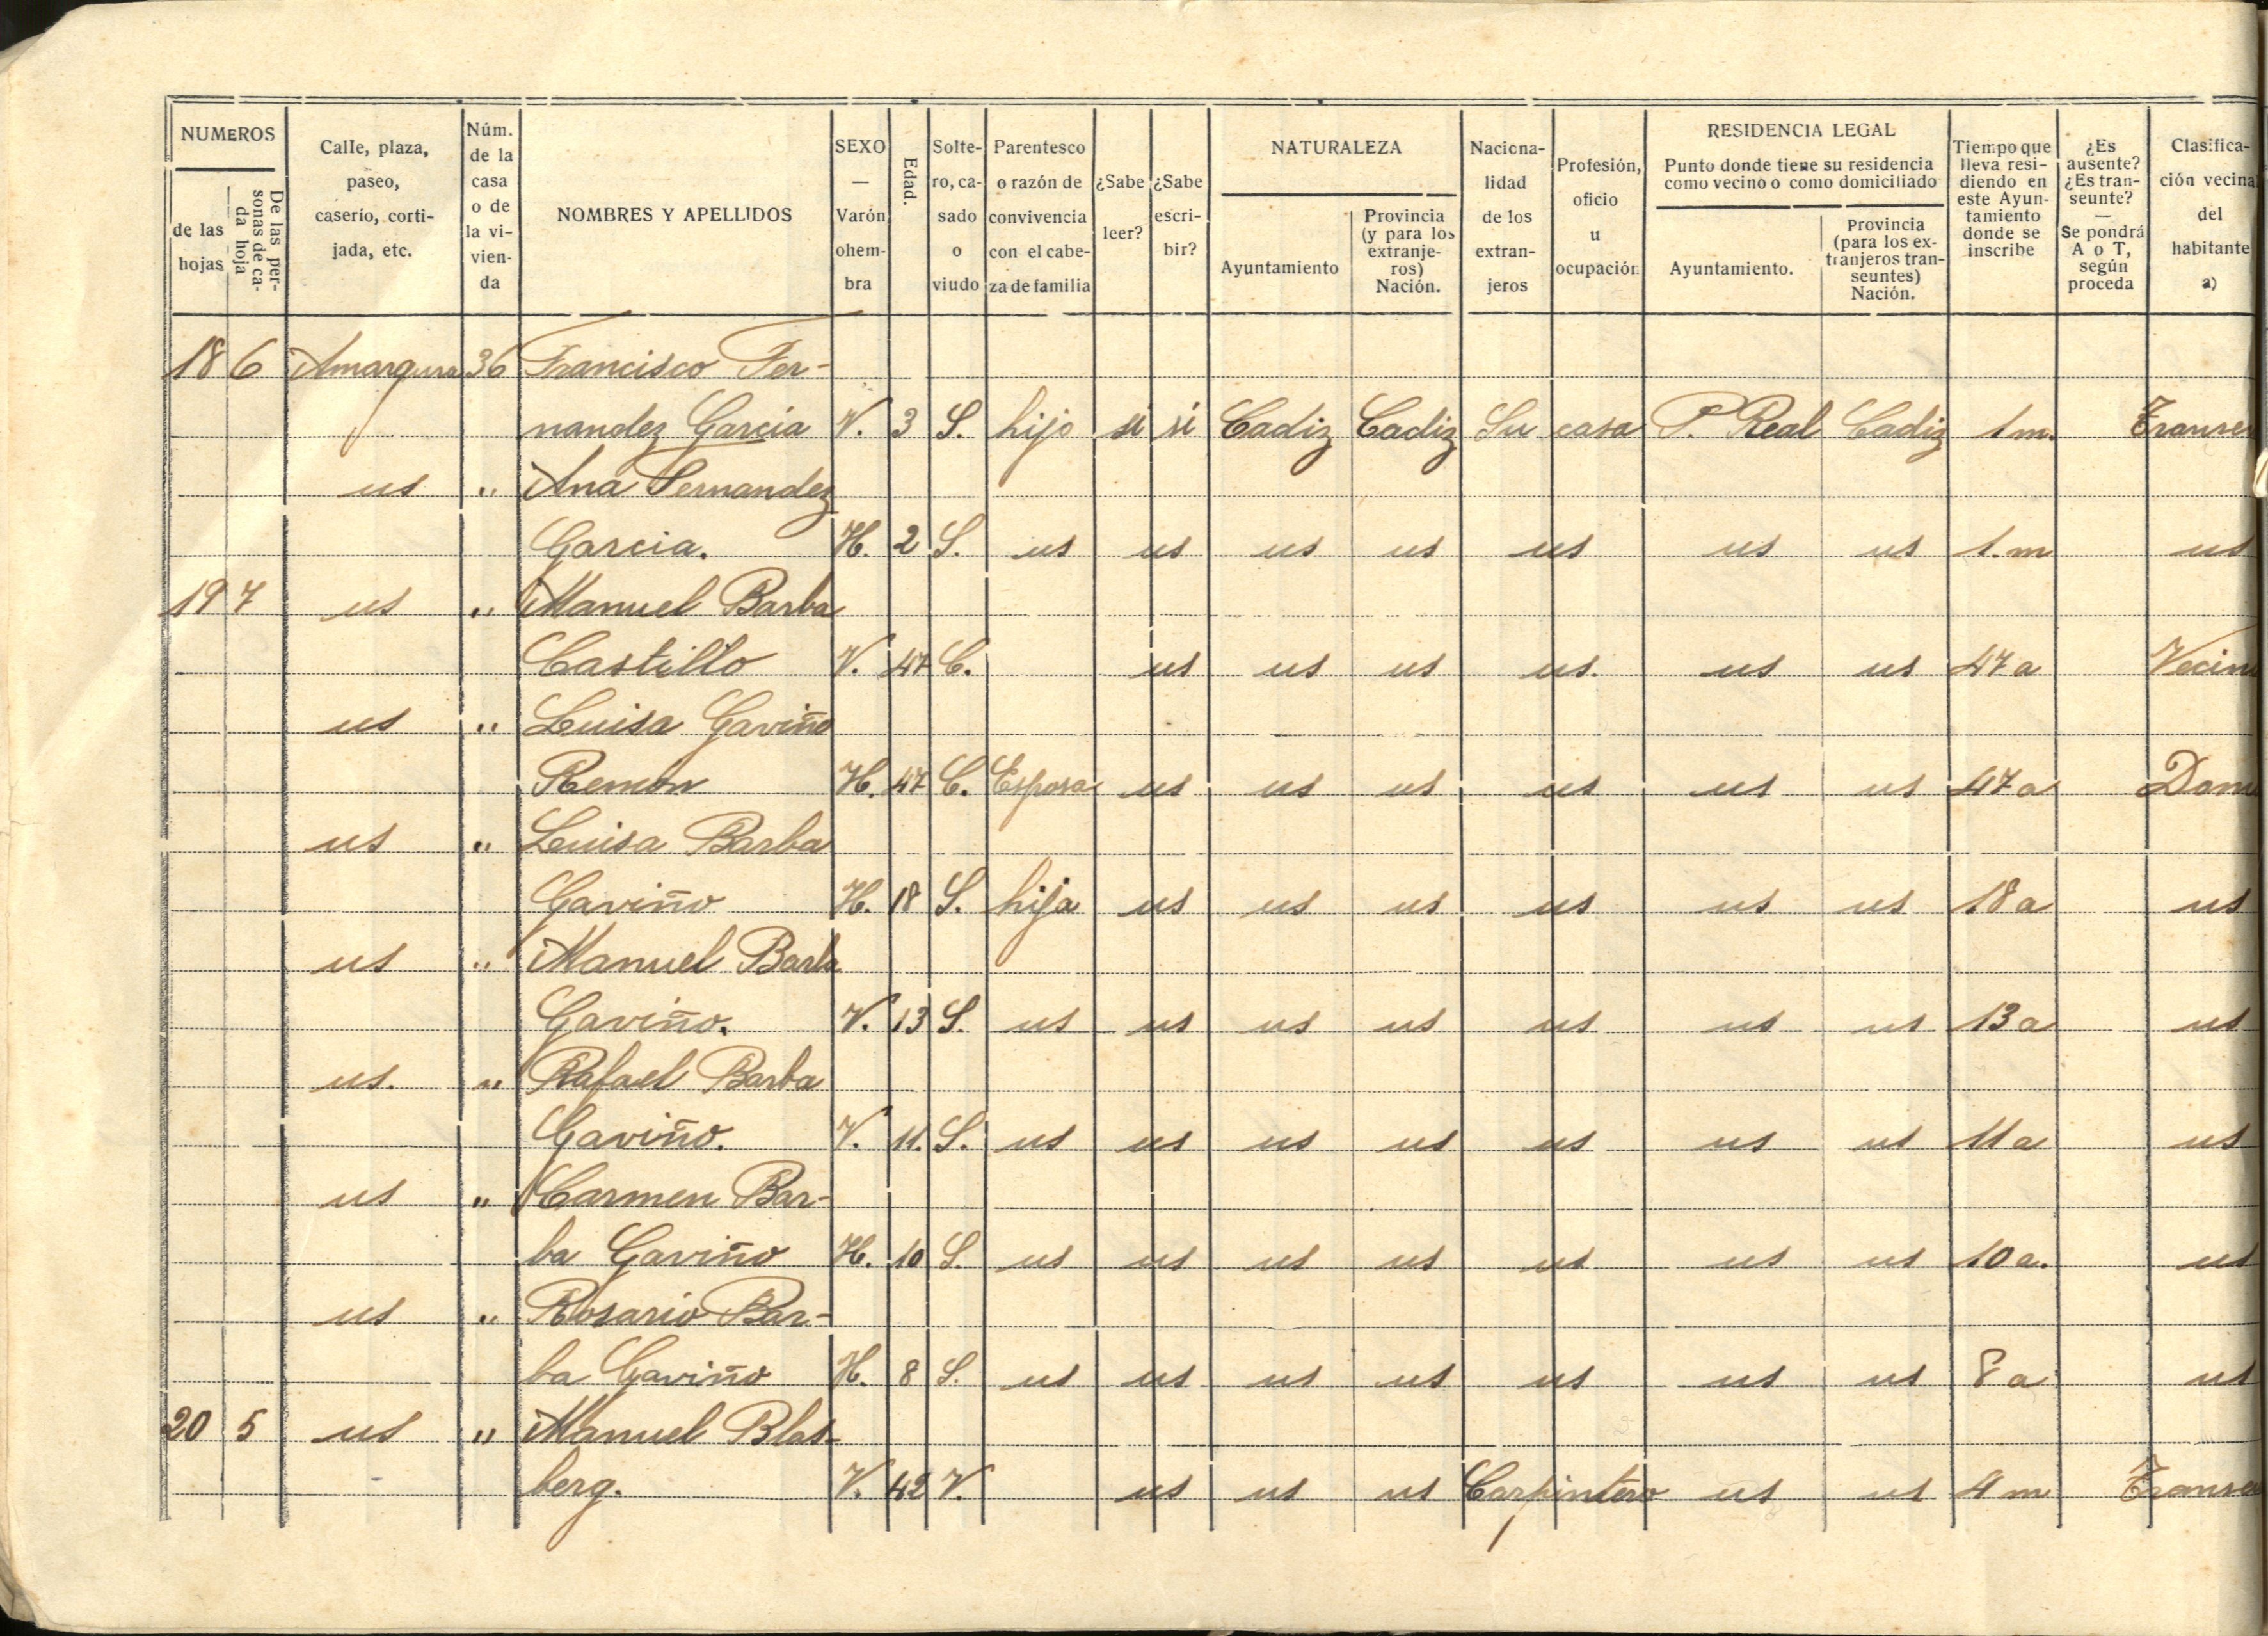 NUMEROS
de las hojas
De las personas de cada hoja
Calle, plaza, paseo, caserío, cortijada, etc.
Núm. de la casa o de la vivienda
NOMBRES Y APELLIDOS
SEXO — Varón o hembra
Edad.
Soltero, casado o viudo
Parentesco o razón de convivencia con el cabeza de familia
¿Sabe leer?
¿Sabe escribir?
NATURALEZA
Ayuntamiento
Provincia (y para los extranjeros) Nación.
Nacionalidad de los extranjeros
Profesión, oficio u ocupación
RESIDENCIA LEGAL
Punto donde tiene su residencia como vecino o como domiciliado
Ayuntamiento.
Provincia (para los extranjeros transeuntes) Nación.
Tiempo que lleva residiendo en este Ayuntamiento donde se inscribe
¿Es ausente? ¿Es transeunte? — Se pondrá A o T, según proceda
Clasificación vecina del habitante a)
18 6 Amargura 36 Francisco Fer-
nandez García V. 3 S. hijo si si Cadiz Cadiz Su casa P. Real Cadiz 1 m. Transe
us " Ana Fernandez
Garcia. H. 2 S. us us us us us us us 1.m us
19 7 us " Manuel Barba
Castillo V. 47 C. us us us us. us us 47 a Vecin
us " Luisa Gaviño
Remon H. 47 C. Esposa us us us us us us 47 a Dom
us " Luisa Barba
Gaviño H. 18 S. hija us us us us us us 18 a us
us " Manuel Barba
Gaviño. V. 13 S. us us us us us us us 13 a us
us. " Rafael Barba
Gaviño. V. 11. S. us us us us us us us 11 a us
us " Carmen Bar-
ba Gaviño H. 10 S. us us us us us us us 10 a. us
us " Rosario Bar-
ba Gaviño H. 8 S. us us us us us us us 8 a us
20 5 us " Manuel Blas-
berg. V. 42 V. us us us Carpintero us us 4 m Transe